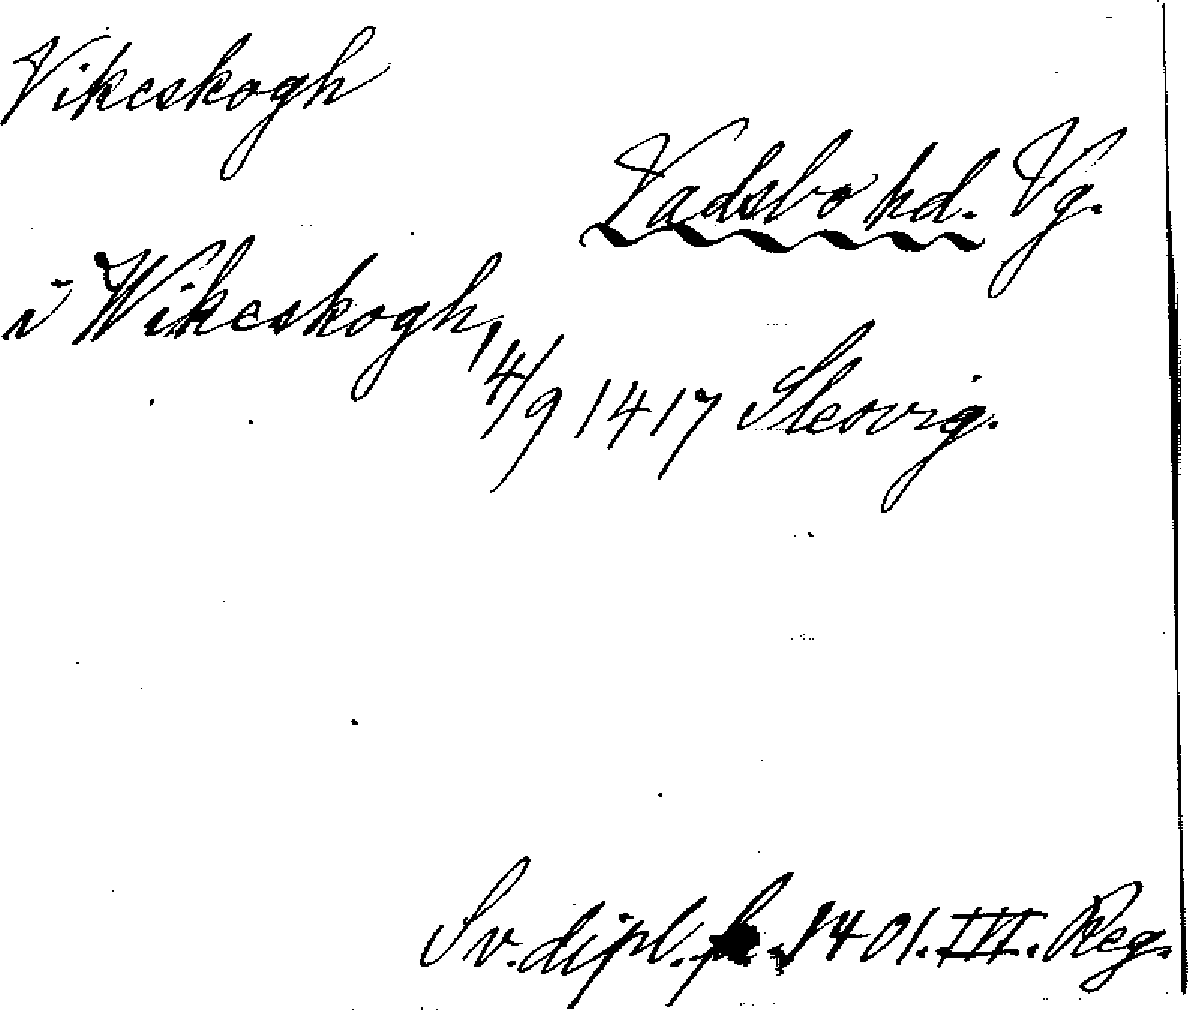 Vikeskogh
Vadsbo hd. Vg.
i Wikeskogh 14/9 1417 Slesvig.
Sv. dipl. fr. 1401. III. Reg.